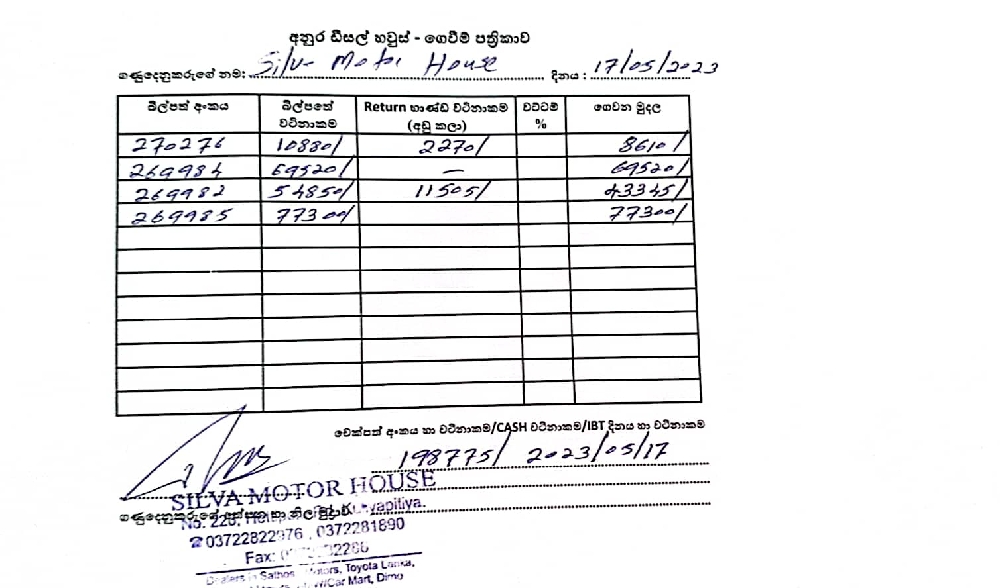 අනුර ඩීසල් හවුස් - ගෙවීම් පත්‍රිකාව
ගණුදෙනුකරුගේ නම: Silva Motor House දිනය : 17/05/2023
බිල්පත් අංකය බිල්පතේ වටිනාකම Return භාණ්ඩ වටිනාකම (අඩු කලා) වට්ටම් % ගෙවන මුදල
270276 10880/ 2270/ 8610/
269984 69520/ — 69520/
269982 54850/ 11505/ 43345/
269985 77300/ 77300/
චෙක්පත් අංකය හා වටිනාකම/CASH වටිනාකම/IBT දිනය හා වටිනාකම
198775/ 2023/05/17
SILVA MOTOR HOUSE
ගණුදෙනුකරුගේ අත්සන හා නිල මුද්‍රාව
No. 226,
☎03722822976 , 0372281890
Fax:
Dealers in Sathosa Motors, Toyota Lanka,
Car Mart, Dimo